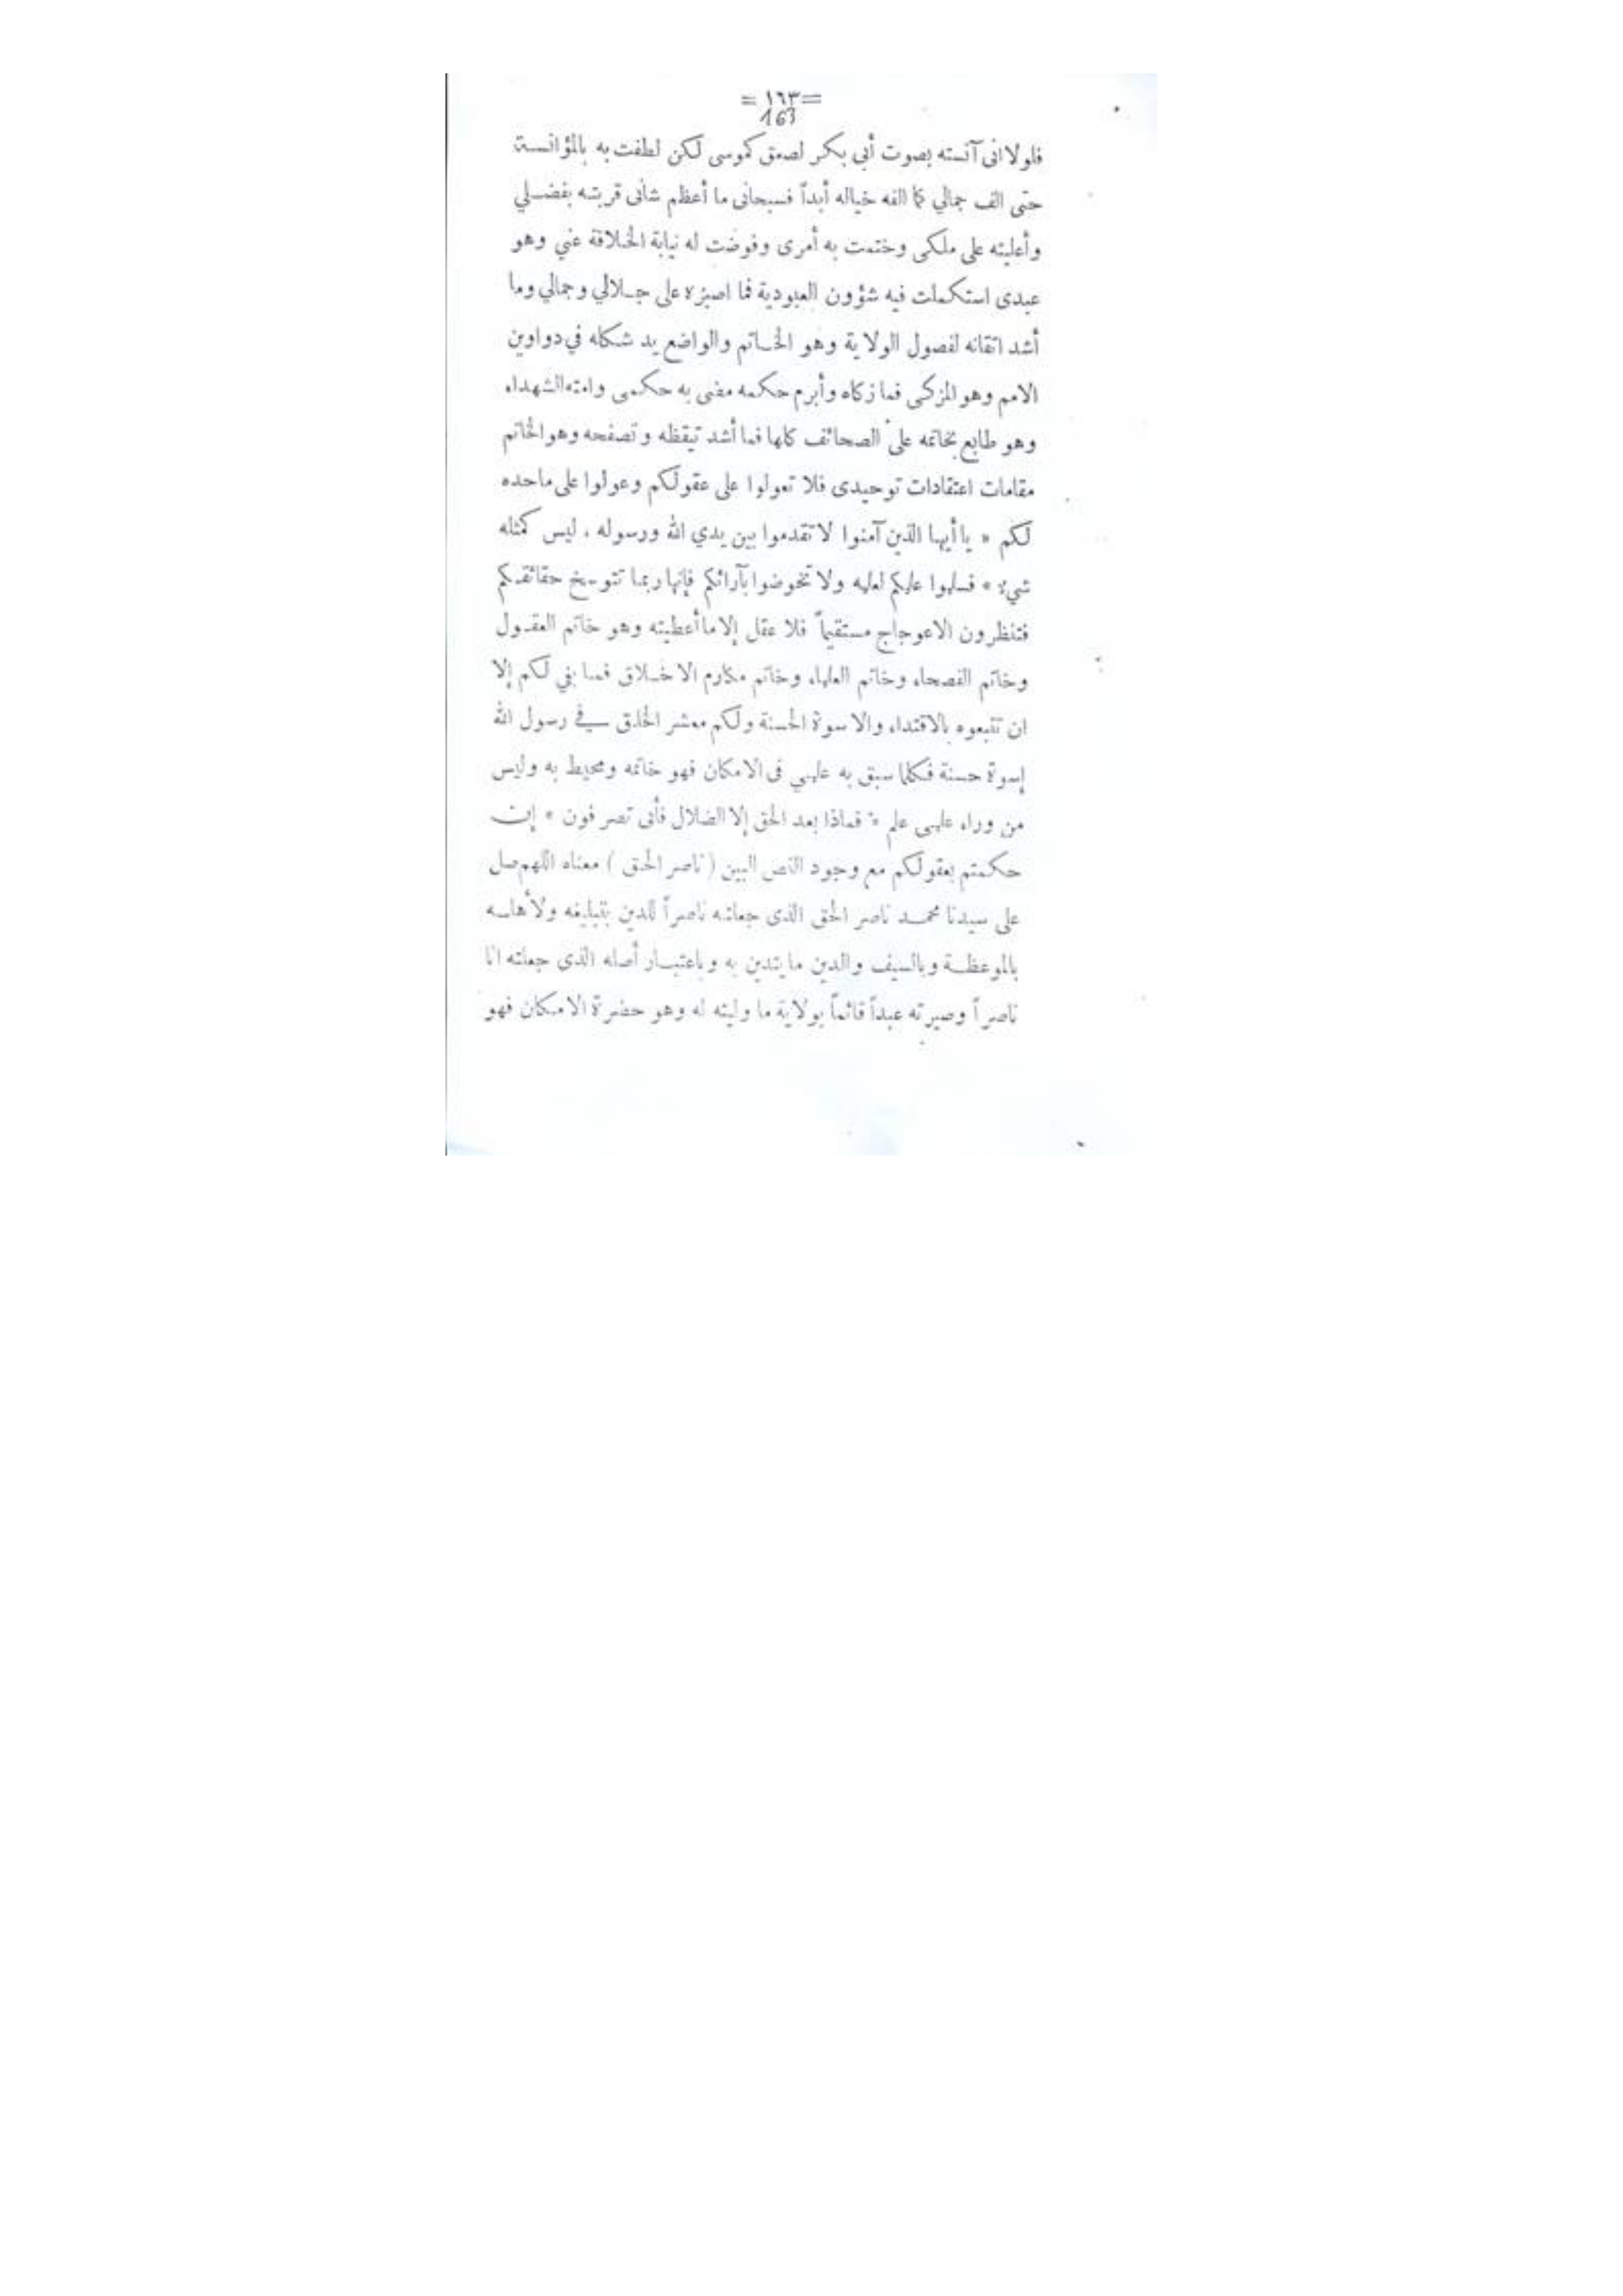 = ١٦٣ =
163
فلولا انى آنسته بصوت أبي بكر لصعق كموسى لكن لطفت به بالمؤانسة
حتى الف جمالي كما الفه خياله أبداً فسبحانى ما أعظم شأنى قربته بفضلي
وأعليته على ملكى وختمت به أمرى وفوضت له نيابة الخلافة عني وهو
عبدى استكملت فيه شؤون العبودية فما اصبره على جلالي وجمالي وما
أشد اتقانه لفصول الولاية وهو الخاتم والواضع يد شكله في دواوين
الامم وهو المزكى فما زكاه وأبرم حكمه مضى به حكمى وامته الشهداء
وهو طابع بخاتمه على الصحائف كلها فما أشد تيقظه وتصفحه وهو الخاتم
مقامات اعتقادات توحيدى فلا تعولوا على عقولكم وعولوا على ماحده
لكم « يا أيها الذين آمنوا لا تقدموا بين يدي الله ورسوله . ليس كمثله
شيء » فسلموا علمكم لعلمه ولا تخوضوا بآرائكم فإنها ربما تتوسخ حقائقكم
فتنظرون الاعوجاج مستقيماً فلا عقل إلا ما أعطيته وهو خاتم العقول
وخاتم الفصحاء وخاتم العلماء وخاتم مكارم الاخلاق فما بقي لكم إلا
ان تتبعوه بالاقتداء والاسوة الحسنة ولكم معشر الخلق في رسول الله
إسوة حسنة فكلما سبق به علمي فى الامكان فهو خاتمه ومحيط به وليس
من وراء علمى علم « فماذا بعد الحق إلا الضلال فأنى تصرفون » إن
حكمتم بعقولكم مع وجود النص البين ( ناصر الحق ) معناه اللهم صل
على سيدنا محمد ناصر الحق الذى جعلته ناصراً للدين بتبليغه ولأهله
بالموعظة وبالسيف والدين ما يتدين به وباعتبار أصله الذى جعلته انا
ناصراً وصيرته عبداً قائماً بولاية ما وليته له وهو حضرة الامكان فهو